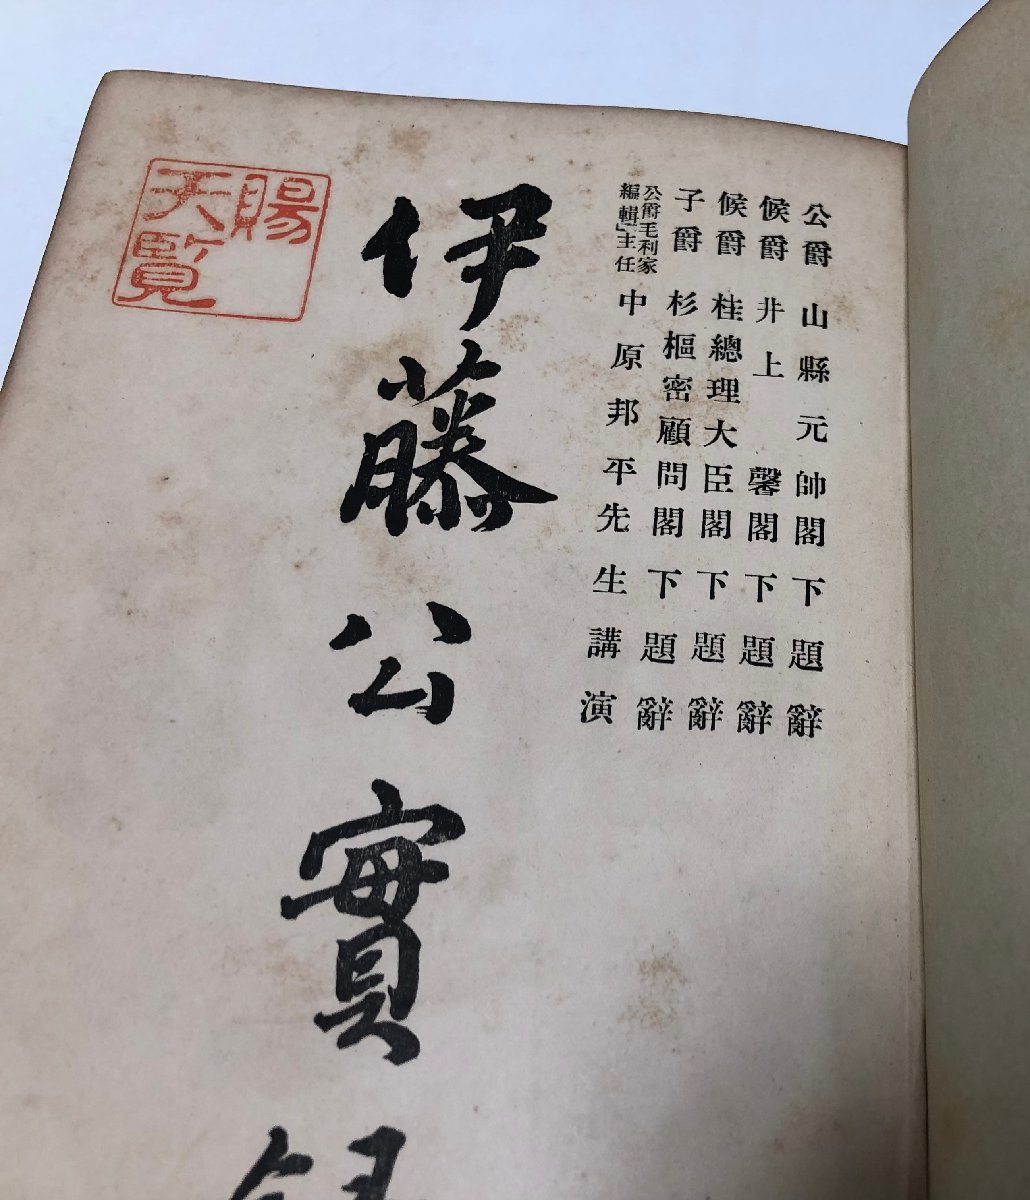 公爵山縣元帥閣下題辭
候爵井上馨閣下題辭
候爵桂總理大臣閣下題辭
子爵杉樞密顧問閣下題辭
公爵毛利家
編輯主任
中原邦平先生講演
伊藤公實錄
賜
天覧